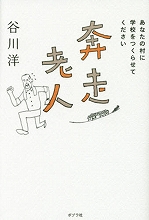 あなたの村に
学校をつくらせて
ください
奔走老人
谷川洋
ポプラ社